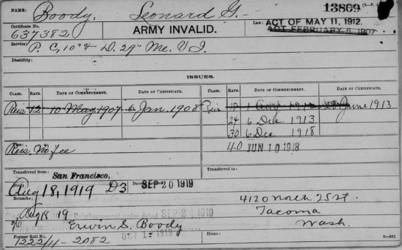 NAME: Boody, Leonard G. 13869
Certificate No. 637382 ARMY INVALID. Law: ACT OF MAY 11, 1912.
ACT FEBRUARY 6, 1907
Service: P. C, 10" & D. 29" Me. V. I.
Disability:
ISSUES.
CLASS. RATE. DATE OF COMMENCEMENT. DATE OF CERTIFICATE. CLASS. RATE. DATE OF COMMENCEMENT. DATE OF CERTIFICATE.
Reis 12 10 May 1907 Jan. 1908 June 1913
24 6 Dec 1913
30 6 Dec 1918
Reis. No fee 40 JUN 10 1918
Transferred from:
San Francisco,
Aug 18, 1919 D3 SEP 20 1919
Remarks: 4120 North 25 St.
Aug 18 19 Tacoma
c/o Erwin S. Boody Wash.
1222411-2082